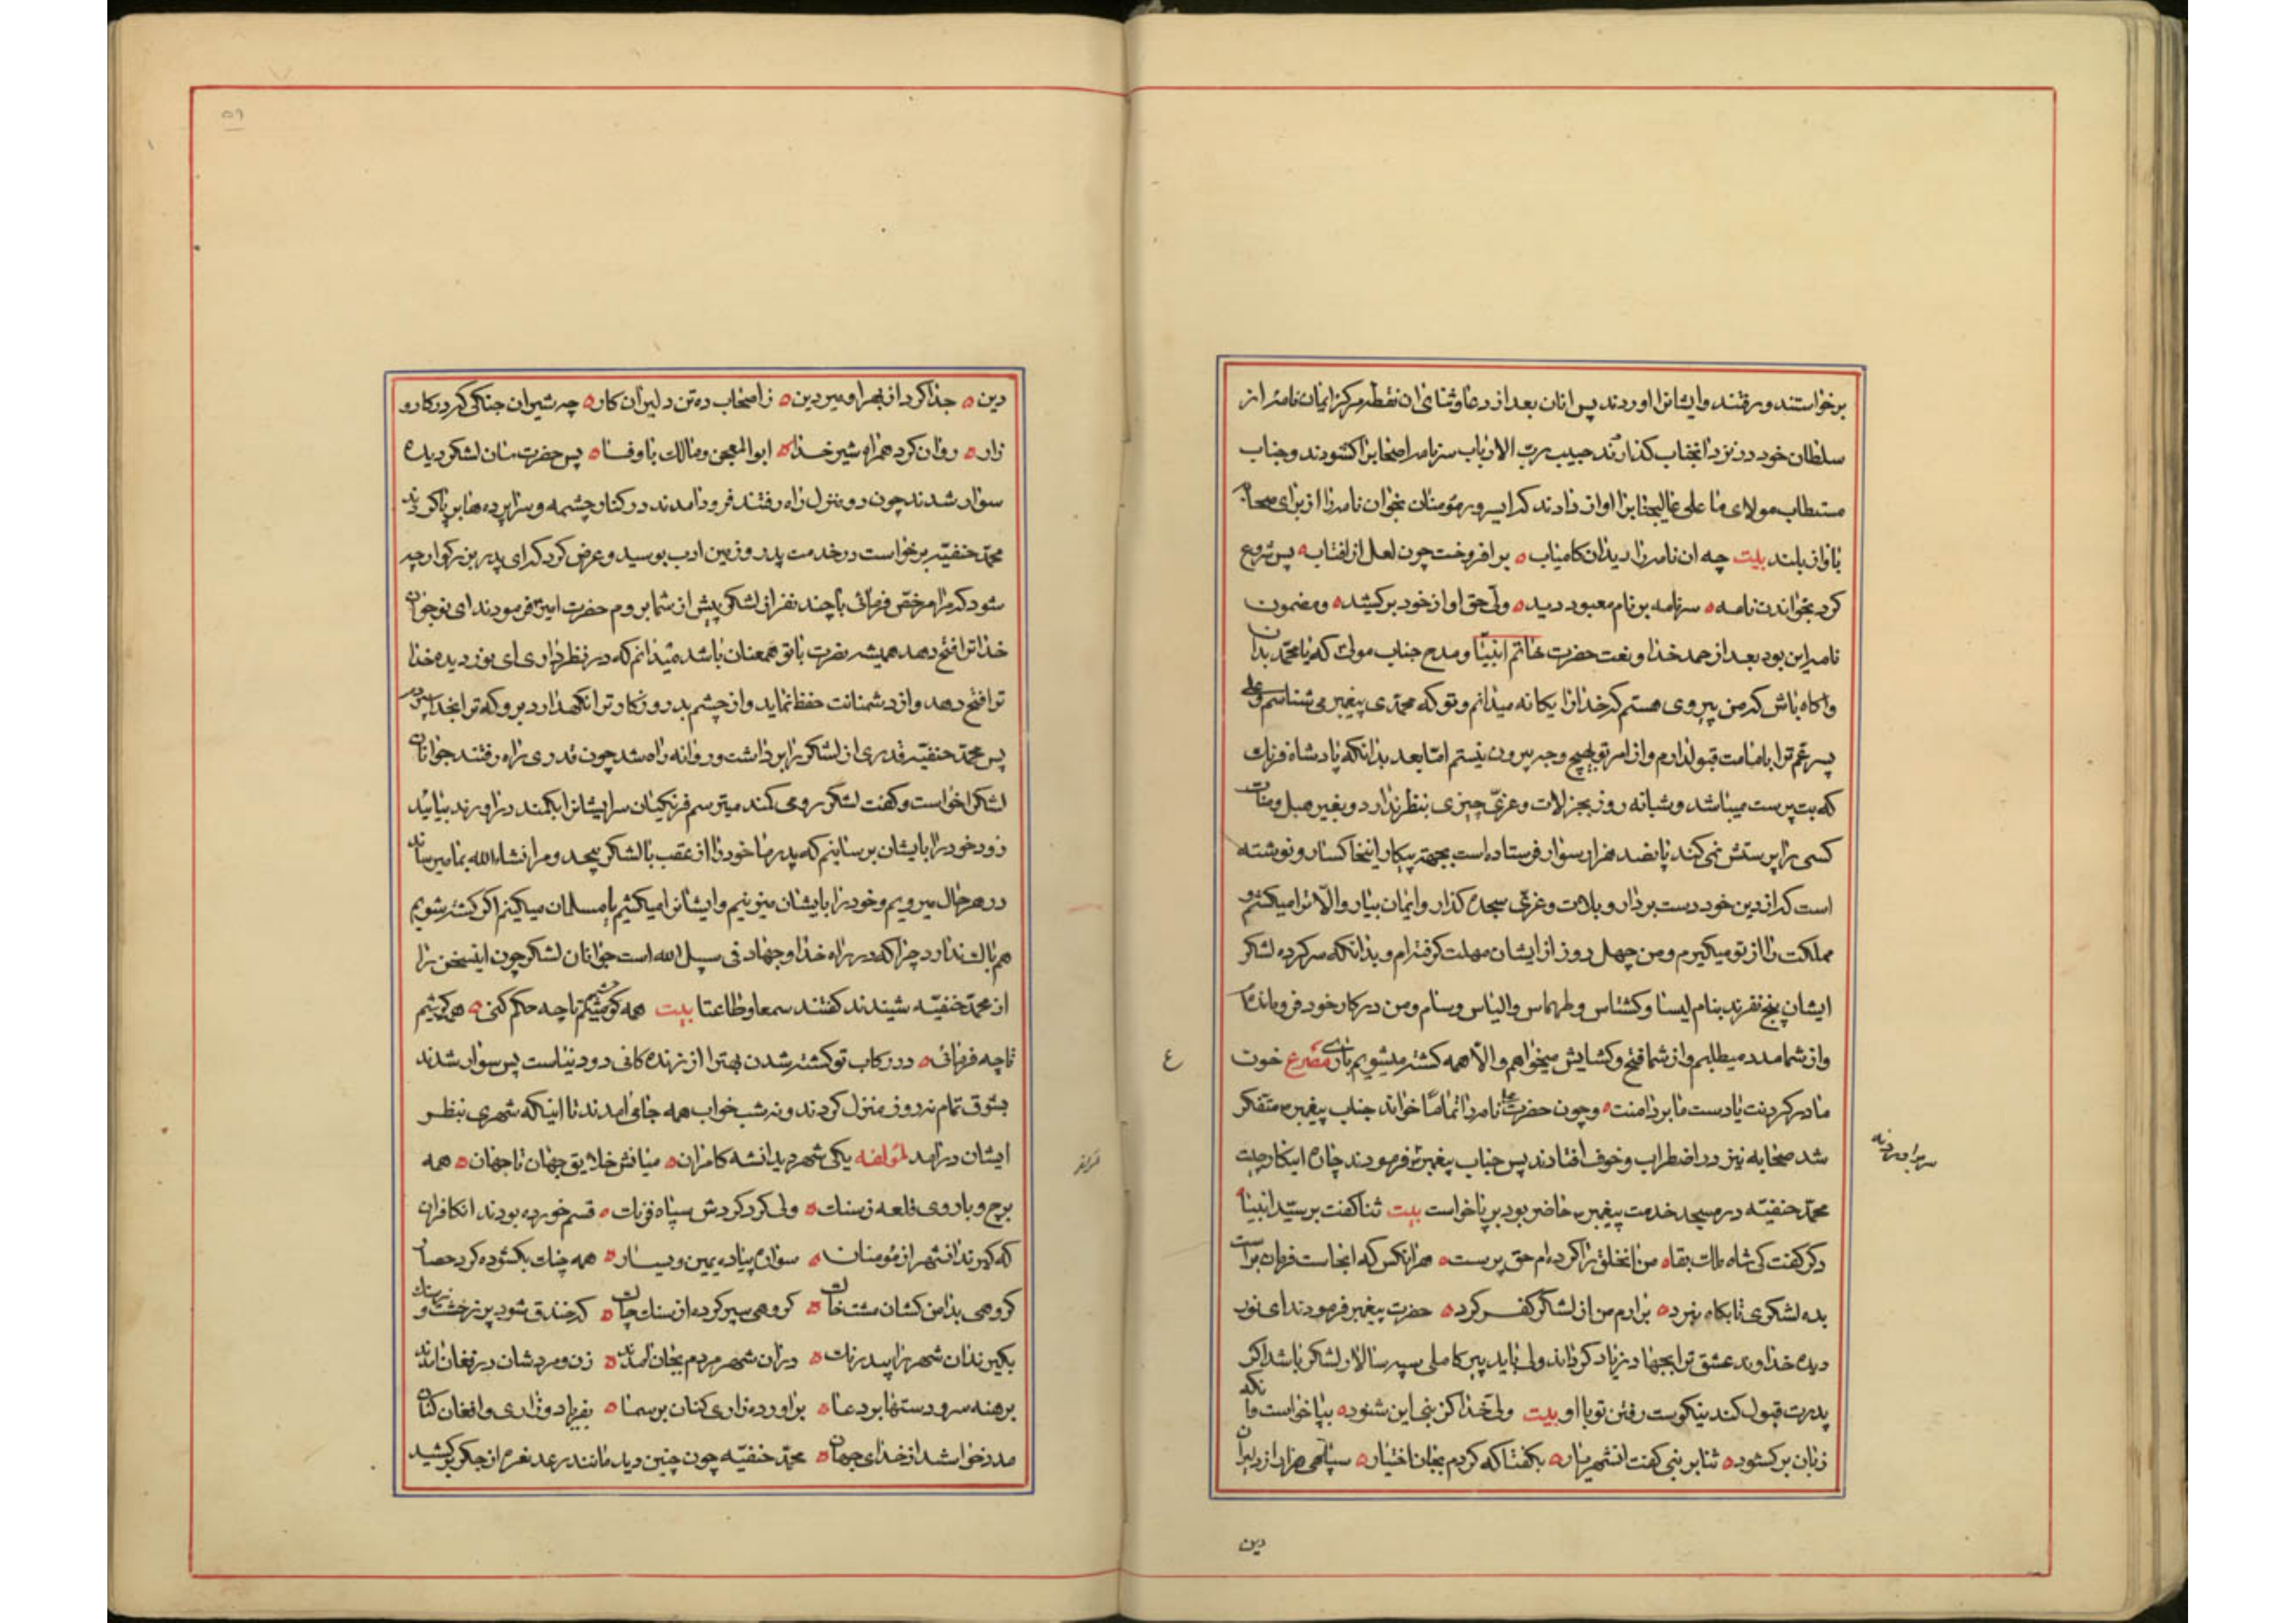 برخواستند و رفتند و ایشانرا اوردند پس انان بعد از دعا و ثنای ان نقطه مرکز ایمان نامه از
سلطان خود در نزد انجناب کذاردند حبیب رب الارباب سر نامه را صحابرا کشودند و جناب
مستطاب مولای ما علی عالیجنابرا اواز دادند که ای سرور مؤمنان بخوان نامه را از برای صحابه
باواز بلند بیت چه ان نامه را دید ان کامیاب برافروخت چون لعل از افتاب پس شروع
کرد بخواندن نامه سر نامه بر نام معبود دید ولی حق اواز خود برکشید و مضمون
نامه این بود بعد از حمد خدا و نعت حضرت خاتم انبیا و مدح جناب مولی که یا محمد بدان
و اکاه باش که من پیروی هستم که خدا را یکانه میدانم و تو که محمدی پیغمبر می شناسم و علی
پسر عم ترا بامامت قبول دارم و از امر تو بهیچ وجه بیرون نیستم اما بعد بدانکه پادشاه فرنک
که بت پرست میباشد و شبانه روز بجز لات و عزی چیزی بنظر ندارد و بغیر هبل و منات
کسی را پرستش نمی کند پانصد هزار سوار فرستاده است بجهة پیکار اینخاکسار و نوشته
است که از دین خود دست بردار و بلات و عزی سجده کذار و ایمان بیار و الا ترا میکشم و
مملکت را از تو میکیرم و من چهل روز از ایشان مهلت کرفته ام و بدانکه سرکرده لشکر
ایشان پنج نفرند بنام لیسا و کشتاس و طهماس و الیاس و سام و من در کار خود فرومانده ام
و از شما مدد میطلبم و از شما فتح و کشایش میخواهم و الا همه کشته میشویم باری مصرع خون
ما در کردنت یا دست ما بر دامنت و چون حضرت علی نامه را تماما خواند جناب پیغمبر متفکر
شد صحابه نیز در اضطراب و خوف افتادند پس جناب پیغمبر فرمودند چاره اینکار چیست
محمد حنفیه در مسجد خدمت پیغمبر حاضر بود برپا خواست بیت ثنا کفت بر سید انبیا
دکر کفت کی شاه ملک بقا من انخلق را کرده ام حق پرست هر انکس که انجاست فرمان براست
بده لشکری تا بکاه نبرد برارم من از لشکر کفر کرد حضرت پیغمبر فرمودند ای نور
دیده خداوند عشق ترا بجهاد زیاد کرداند ولی باید پیر کاملی سپه سالار لشکر باشد اکر
پدرت قبول کند نیکوست رفتن تو با او بیت ولی خدا کز نبی این شنود بپا خواست وانکه
زبان برکشود ثنا بر نبی کفت انشهریار بکفتا که کردم بجان اختیار سپاهی هزار از دلیران
دین
سربراه
دین جدا کرد از بهر او میر دین ز اصحاب ده تن دلیران کار چه شیران جنکی که در کارو
زار روان کرد همراه شیر خدا ابوالمعجن و مالک باوفا پس حضرت سان لشکر دیده
سوار شدند چون دو منزل راه رفتند فرود امدند در کنار چشمه و سراپرده ها برپا کردند
محمد حنفیه برخواست در خدمت پدر و زمین ادب بوسید و عرض کرد که ای پدر بزرکوار چه
شود که مرا مرخص فرمائی با چند نفر از لشکر پیش از شما بروم حضرت امیر فرمودند ای نوجوان
خدا ترا فتح دهد همیشه نصرت با تو همعنان باشد میدانم که در نظر داری ای نور دیده خدا
ترا فتح دهد و از دشمنانت حفظ نماید و از چشم بد روزکار ترا نکهدارد برو که ترا بخدا سپردم
پس محمد حنفیه قدری از لشکر را برداشت و روانه راه شد چون قدری راه رفتند جوانان
لشکر را خواست و کفت لشکر روی کند میترسم فرنکیان سر ایشانرا بکمند دراورند بیائید
زود خود را بایشان برسانیم که پدر ما خود را از عقب با لشکر بیحد و مر انشاءالله بما میرساند
در هر حال میرویم و خود را بایشان میزنیم و ایشانرا میکشیم یا مسلمان میکنیم اکر کشته شویم
هم باک ندارد چرا که در راه خدا و جهاد فی سبیل الله است جوانان لشکر چون اینسخن را
از محمد حنفیه شنیدند کفتند سمعا و طاعتا بیت همه کوشیم تا چه حکم کنی همه کوشیم
تا چه فرمائی در رکاب تو کشته شدن بهتر از زنده کانی در دنیاست پس سوار شدند
بشوق تمام نه روز منزل کردند و نه شب خواب همه جای امدند تا اینکه شهری بنظر
ایشان درامد لمؤلفه یکی شهر دید انشه کامران میانش خلایق جهان تا جهان همه
برج و باروی قلعه ز سنک ولی کرد کردش سپاه فرنک قسم خورده بودند ان کافران
که کیرند انشهر از مؤمنان سواره پیاده یمین و یسار همه چنک بکشوده کرد حصار
کروهی بدامن کشان مشت خاک کروهی سپر کرده از سنک چاک که خندق شود پر ز خشت و ز سنک
بکیرند ان شهر را بیدرنک دران شهر مردم بجان امدند زن و مردشان در فغان امدند
برهنه سر و دستها بر دعا براورده زاری کنان بر سما بفریاد و زاری و افغان کنان
مدد خواستند از خدای جهان محمد حنفیه چون چنین دید مانند رعد نعره از جکر برکشید